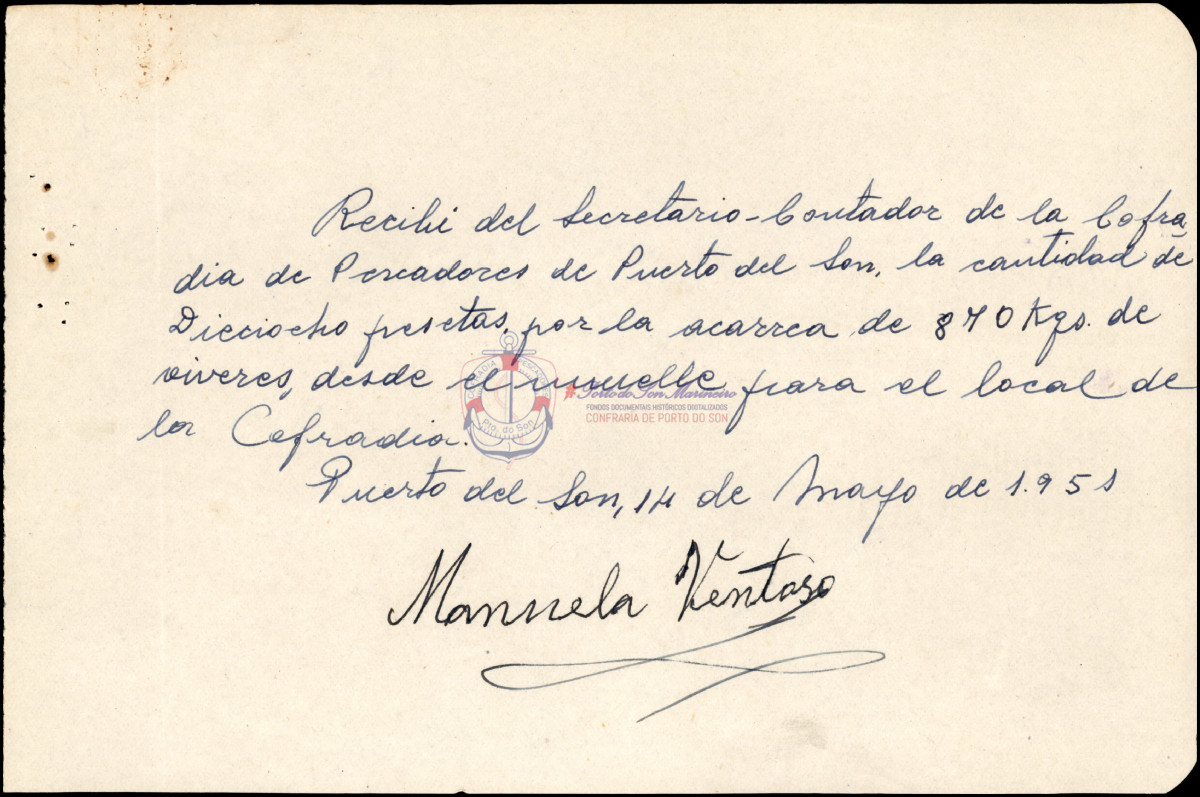 Recibi del Secretario-Contador de la Cofra
dia de Pescadores de Puerto del Son, la cantidad de
Dieciocho pesetas, por la acarrea de 870 Kgs. de
viveres, desde el muelle para el local de
la Cofradia.
Puerto del Son, 14 de Mayo de 1.951
Manuela Ventoso
COFRADIA PESCADORES
Pto. do Son
#Porto do Son Marineiro
FONDOS DOCUMENTAIS HISTÓRICOS DIXITALIZADOS
CONFRARÍA DE PORTO DO SON